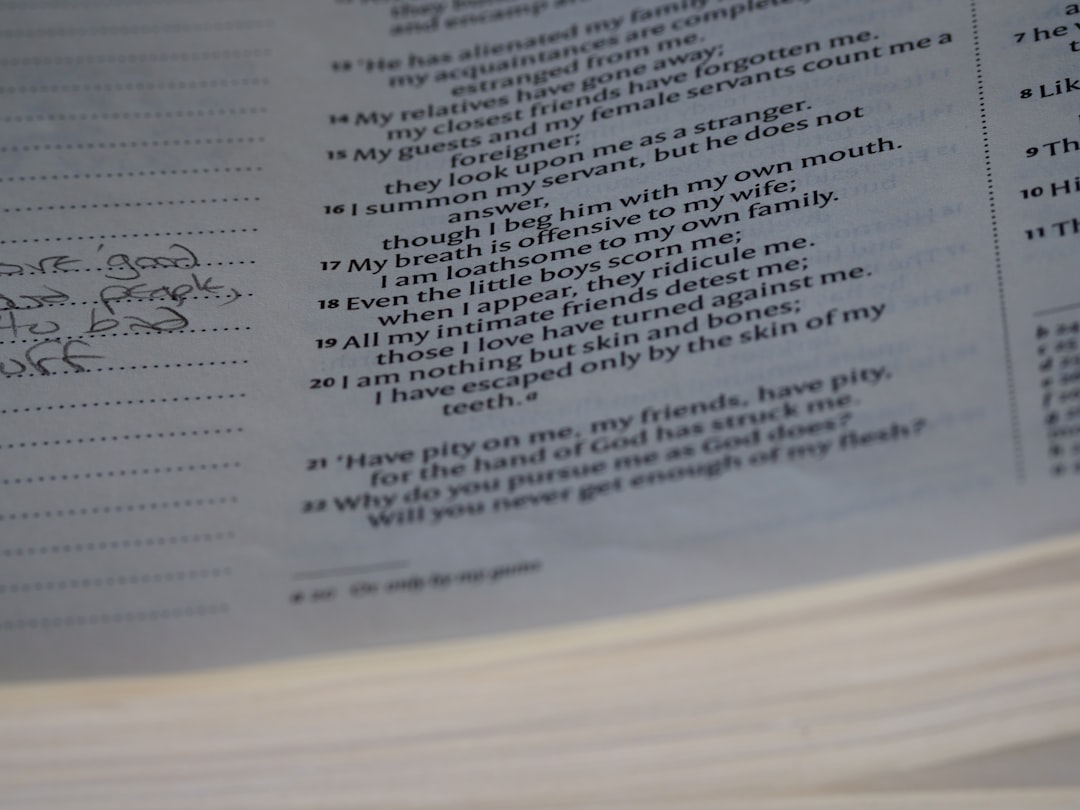 good
people,
to bad
and encamp
13 'He has alienated my family
my acquaintances are complete
estranged from me.
14 My relatives have gone away;
my closest friends have forgotten me.
15 My guests and my female servants count me a
foreigner;
they look upon me as a stranger.
16 I summon my servant, but he does not
answer,
though I beg him with my own mouth.
17 My breath is offensive to my wife;
I am loathsome to my own family.
18 Even the little boys scorn me;
when I appear, they ridicule me.
19 All my intimate friends detest me;
those I love have turned against me.
20 I am nothing but skin and bones;
I have escaped only by the skin of my
teeth.a
21 'Have pity on me, my friends, have pity,
for the hand of God has struck me.
22 Why do you pursue me as God does?
Will you never get enough of my flesh?
a 20 Or only by my gums
7 he
8 Lik
9 Th
10 Hi
11 Th